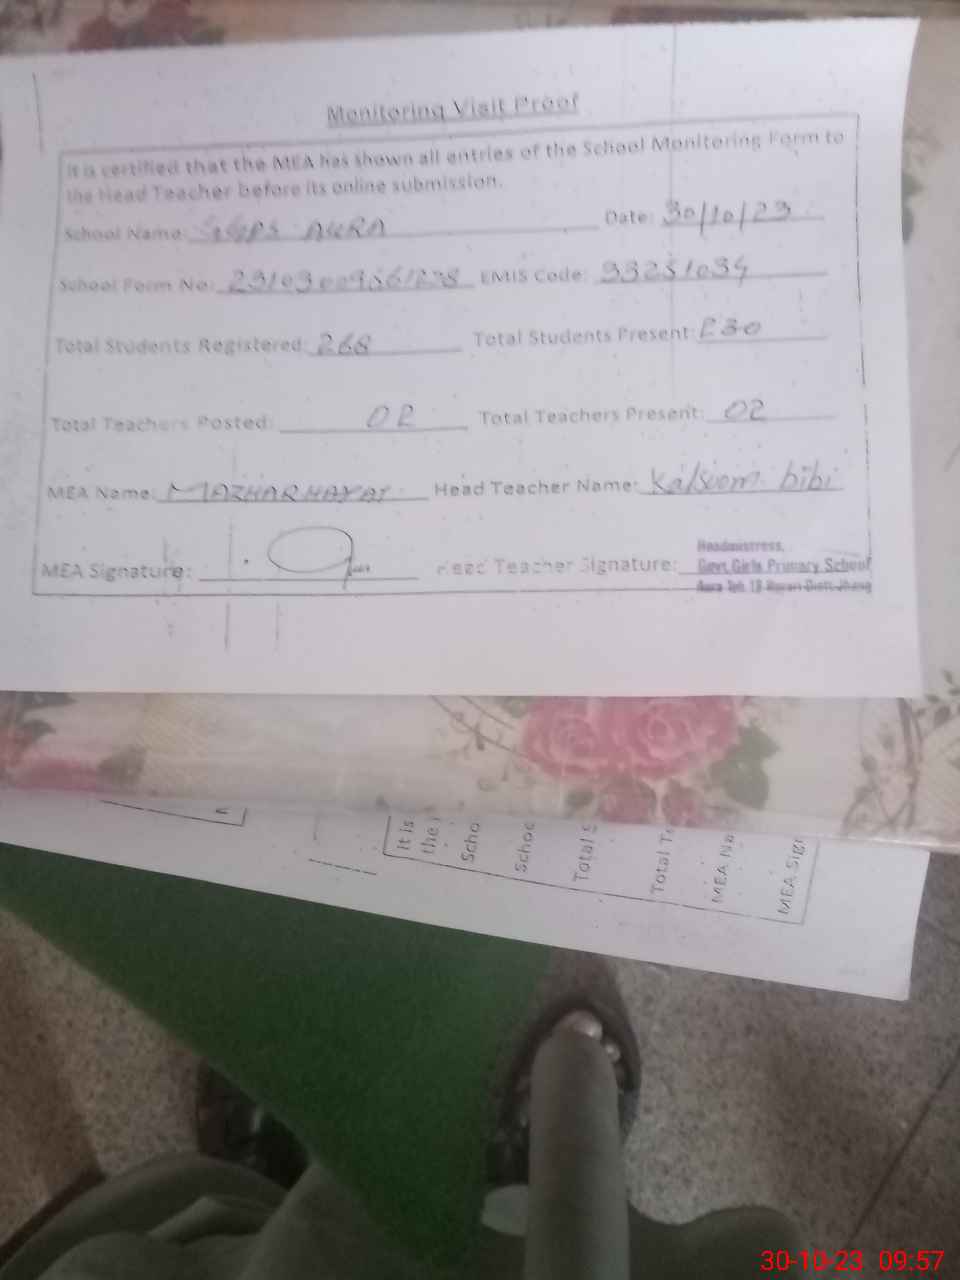 Monitoring Visit Proof
It is certified that the MEA has shown all entries of the School Monitoring Form to
the Head Teacher before its online submission.
School Name: GGPS AURA Date: 30/10/23
School Form No: EMIS Code: 33251034
Total Students Registered: 268 Total Students Present: 230
Total Teachers Posted: 02 Total Teachers Present: 02
MEA Name: MAZHAR HAYAT Head Teacher Name: Kalsoom bibi
MEA Signature: Head Teacher Signature:
Headmistress,
Govt. Girls Primary School
Aura Teh. 18-Hazari Distt. Jhang
It is
the
Scho
Schoo
Total S
Total Te
MEA Na
MEA Sign
30-10-23 09:57